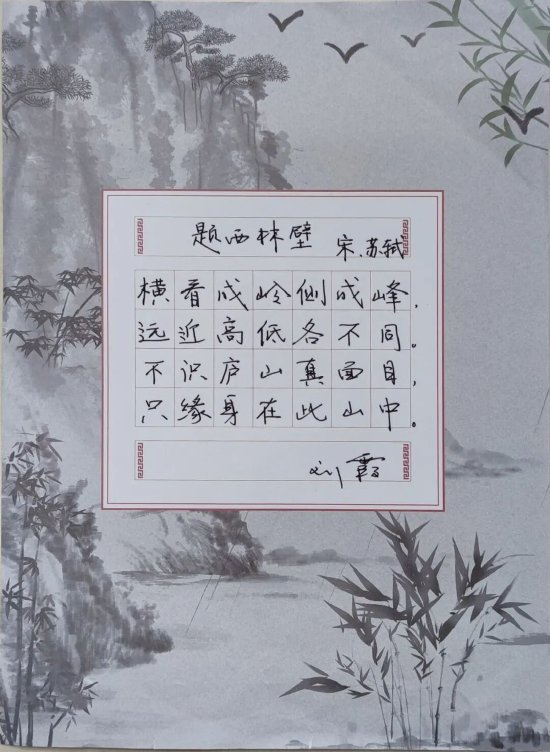 题西林壁
宋、苏轼
横看成岭侧成峰，
远近高低各不同。
不识庐山真面目，
只缘身在此山中。
刘霞